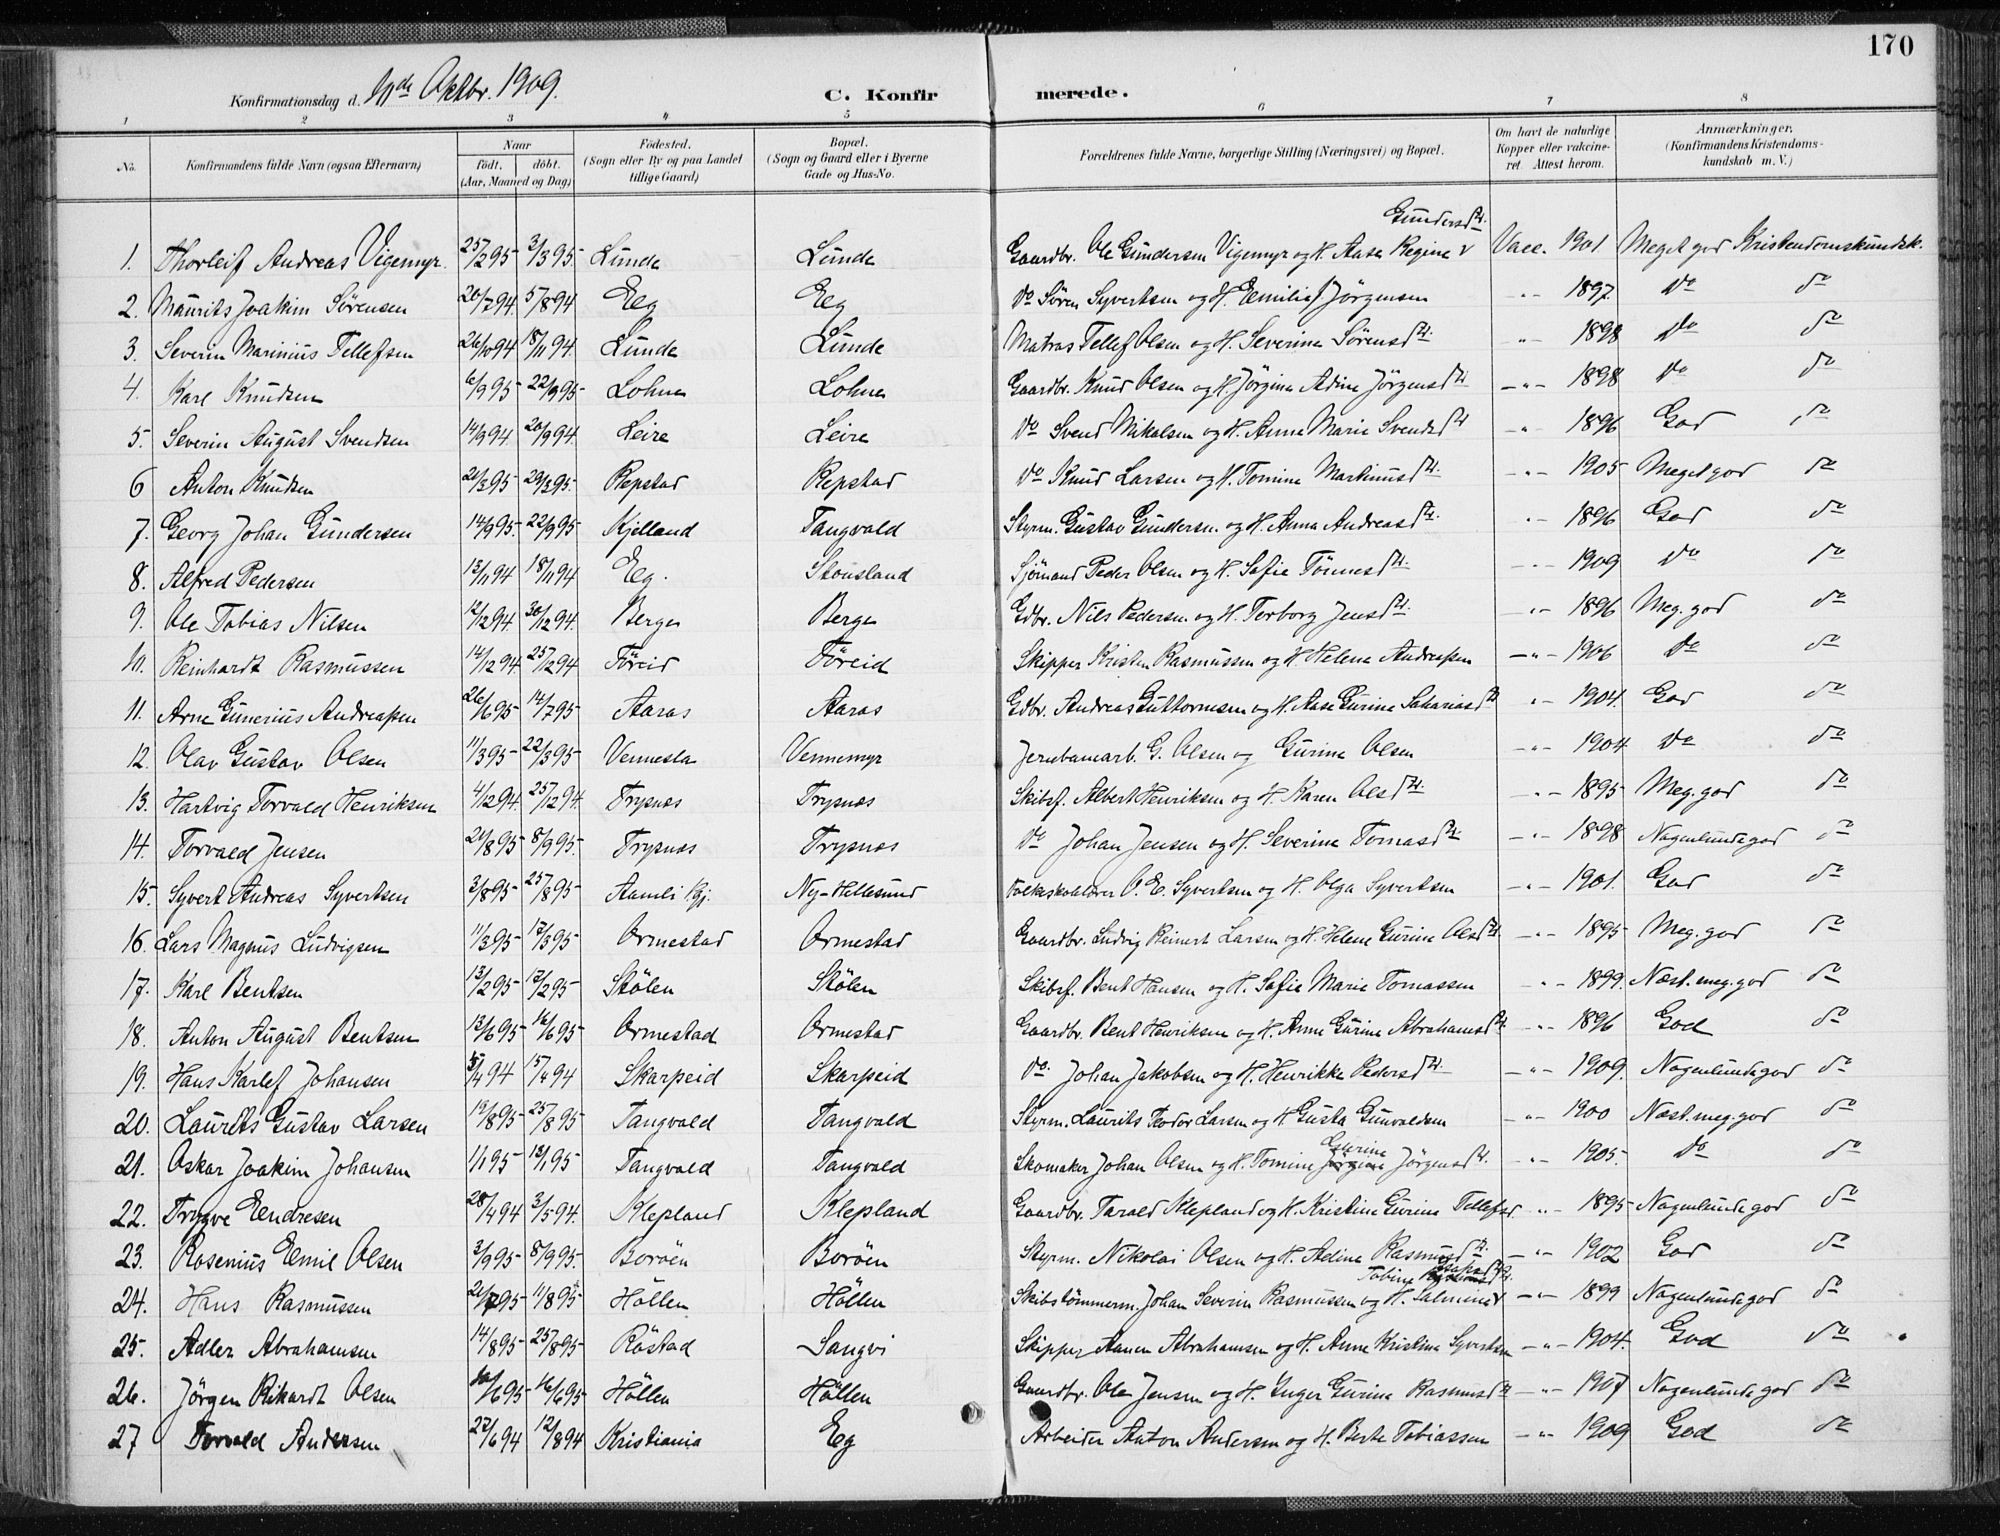 170
Konfirmationsdag d. Oktbr. 1909. C. Konfirmerede.
1 2 3 4 5 6 7 8
No. Konfirmandens fulde Navn (ogsaa Efternavn) Naar födt. döbt. (Aar, Maaned og Dag) Födested. (Sogn eller By og paa Landet tillige Gaard) Bopæl. (Sogn og Gaard eller i Byerne Gade og Hus-No. Forældrenes fulde Navne, borgerlige Stilling (Næringsvei) og Bopæl. Om havt de naturlige Kopper eller vakcineret. Attest herom. Anmærkninger. (Konfirmandens Kristendomskundskab m. V.)
1. Thorleif Andreas Vigemyr. 25/2 95 3/3 95 Lunde Lunde Gaardbr. Ole Gundersen Vigemyr og H. Aase Regine Gundersdtr. Vacc. 1901 Meget god Kristendomskundsk.
2. Maurits Joakim Sörensen 20/7 94 5/8 94 Eeg Eeg Do Sören Syvertsen og H. Emilie Jörgensen -"- 1897. Do do
3. Severin Marinius Tellefsen 26/10 94 18/11 94 Lunde Lunde Matros Tellef Olsen og H. Severine Sörensdtr. -"- 1898 Do do
4. Karl Knudsen 6/9 95 22/9 95 Lohne Lohne Gaardbr. Knud Olsen og H. Jörgine Adine Jörgensdtr -"- 1898 Do do
5. Severin August Svendsen 14/9 94 20/9 94. Leire Leire Do Svend Nikolsen og H. Anne Marie Svendsdtr -"- 1896 God do
6 Anton Knudsen 21/3 95 29/3 95. Repstad Repstad Do Knud Larsen og H. Tomine Martinusdtr. -"- 1905 Meget god do
7. Georg Johan Gundersen 14/9 95. 22/9 95 Kjelland Tangvald Styrm. Gustav Gundersen og H. Anna Andreasdtr. -"- 1896 God do
8. Alfred Pedersen 13/11 94 18/11 94 Eg. Stousland Sjömand Peder Olsen og H. Sofie Tönnesdtr. -"- 1909 Do do
9. Ole Tobias Nilsen 12/12 94. 30/12 94. Berge Berge Gdbr. Nils Pedersen og H. Torborg Jensdtr. -"- 1896 Meg. god do
10. Reinhardt Rasmussen 14/12 94. 25/12 94 Föreid Föreid Skipper Kristen Rasmussen og H. Helene Andreassen -"- 1906 Do do
11. Arne Gunerius Andreassen 26/6 95 14/7 95 Aaros Aaros Gdbr. Andreas Guttormsen og H. Aase Gurine Sakariasdtr -"- 1904. God do
12. Olav Gustav Olsen 11/3 95 22/3 95 Vennesla Vennemyr Jernbanearb. G. Olsen og Gurine Olsen -"- 1904 Do do
13. Hartvig Torvald Henriksen 4/12 94. 25/12 94. Trysnes Trysnes Skibsf. Albert Henriksen og H. Karen Olsdtr. -"- 1895 Meg. god do
14. Torvald Jensen 21/8 95 8/9 95. Trysnes Trysnes Do Johan Jensen og H. Severine Tomasdtr. -"- 1898 Nogenlunde god do
15. Syvert Andreas Syvertsen 3/8 95 25/8 95 Aamli Ny-Hellesund Folkeskolelærer O. E. Syvertsen og H. Olga Syvertsen -"- 1901. God do
16. Lars Magnus Ludvigsen 11/3 95 17/3 95 Ormestad Ormestad Gaardbr. Ludvig Reinert Larsen og H. Helene Gurine Olsdtr. -"- 1895 Meg. god do
17. Karl Bentsen 13/2 95 17/2 95 Stölen Stölen Skibsf. Bent Hansen og H. Sofie Marie Tomassen -"- 1899. Næst. meg. god do
18. Anton August Bentsen 13/6 95 16/6 95 Ormestad Ormestad Gaardbr. Bent Henriksen og H. Anne Gurine Abrahamsdtr. -"- 1896 God do
19. Hans Karlef Johansen /4 94 15/4 94 Skarpeid Skarpeid Do. Johan Jakobsen og H. Henrikke Pedersdtr. -"- 1909. Nogenlunde god do
20. Laurits Gustav Larsen 19/8 95 25/8 95 Tangvald Tangvald Styrm. Laurits Teodor Larsen og H Gusta Gunvaldsen -"- 1900 Næst. meg. god do
21. Oskar Joakim Johansen 1/1 95 13/1 95 Tangvald Tangvald Skomaker Johan Olsen og H. Tomine Gurine Jörgensdtr. -"- 1905. Do do
22. Trygve Endresen 28/4 94 3/5 94. Klepland Klepland Gaardbr. Tarald Klepland og H. Kristine Gurine Tellefsd -"- 1895 Nogenlunde god do
23. Rosenius Emil Olsen 3/9 95 8/9 95. Boröen Boröen Styrm. Nikolai Olsen og H. Adine Rasmusdtr. -"- 1902 God do
24. Hans Rasmussen 21/7 95 11/8 95 Höllen Höllen Skibstömmerm. Johan Severin Rasmussen og H. Salmine Tobine -"- 1899 Nogenlunde god do
25. Adler Abrahamsen 14/8 95 25/8 95 Röstad Langvi Skipper Aanen Abrahamsen og H. Anne Kristine Syvertsen -"- 1904. God do
26. Jörgen Rikardt Olsen 10/6 95 16/6 95 Höllen Höllen Gaardbr. Ole Jensen og H. Inger Gurine Rasmusdtr -"- 1907 Nogenlunde god do
27 Torvald Andersen 27/6 94 12/8 94 Kristiania Eg Arbeider Anton Andersen og H. Berte Tobiassen -"- 1909 God do